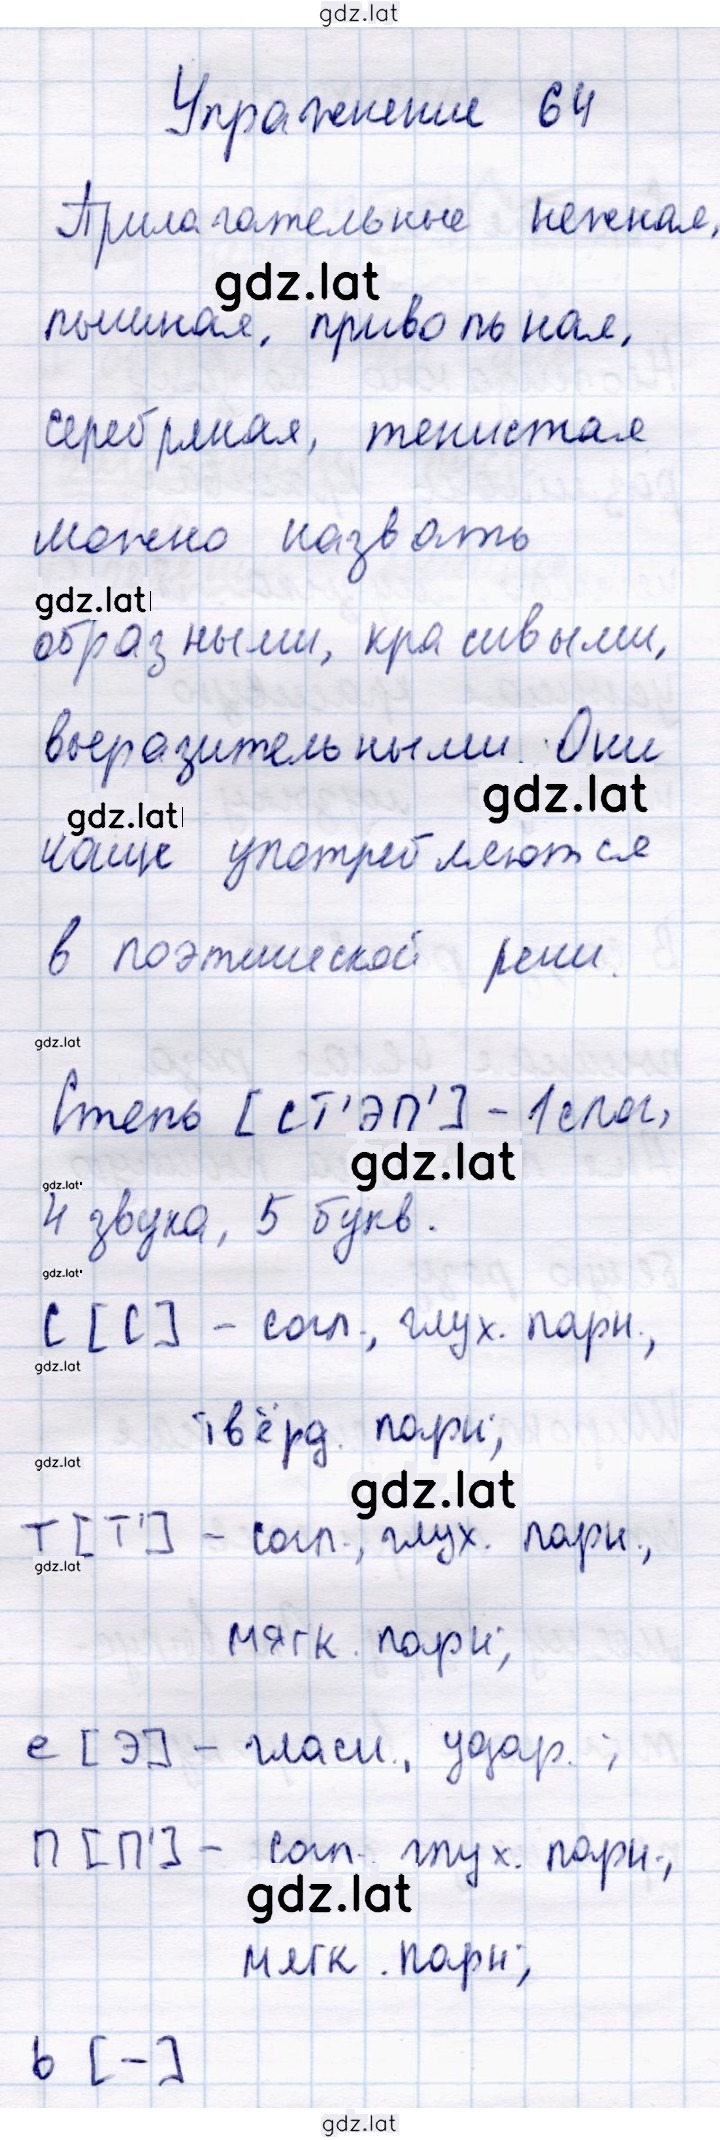 gdz.lat
Упражнение 64
Прилагательные нежная,
gdz.lat
пышная, привольная,
серебряная, тенистая
можно назвать
gdz.lat
образными, красивыми,
выразительными. Они
gdz.lat
gdz.lat
чаще употребляются
в поэтической речи.
gdz.lat
Степь [СТ'ЭП'] - 1 слог,
gdz.lat
gdz.lat
4 звука, 5 букв.
gdz.lat
С [С] - согл., глух. парн.,
gdz.lat
твёрд. парн;
gdz.lat
gdz.lat
Т [Т'] - согл., глух. парн.,
gdz.lat
мягк. парн;
е [Э] - гласн., удар.;
П [П'] - согл. глух. парн.,
gdz.lat
мягк. парн;
ь [-]
gdz.lat